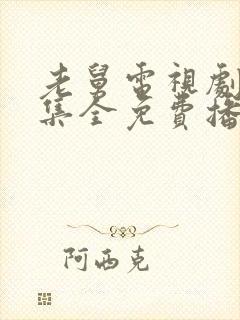 老舅電視劇
集全免費播
阿西克